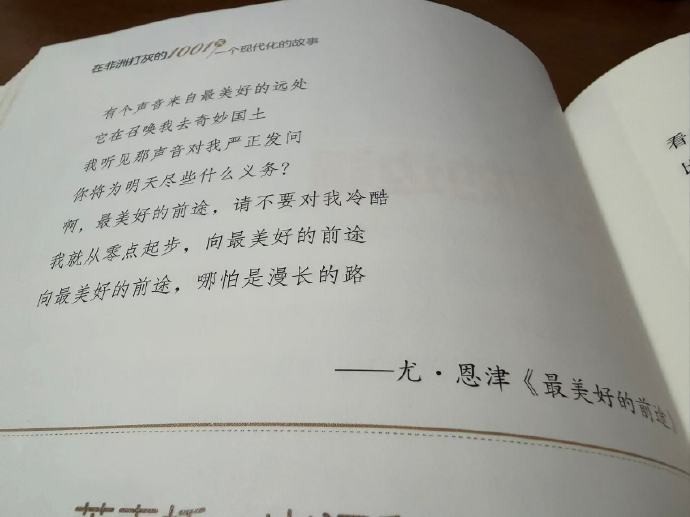 在非洲打灰的1001夜/一个现代化的故事
有个声音来自最美好的远处
它在召唤我去奇妙国土
我听见那声音对我严正发问
你将为明天尽些什么义务？
啊，最美好的前途，请不要对我冷酷
我就从零点起步，向最美好的前途
向最美好的前途，哪怕是漫长的路
——尤·恩津《最美好的前途》
看